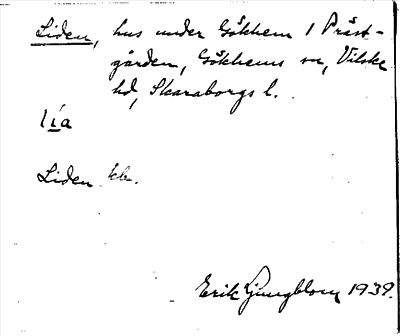 Liden, hus under Gökhem 1 Präst-
gården, Gökhems sn, Vilske
hd, Skaraborgs l.
lía
Liden kb.
Erik Ljungblom 1939.